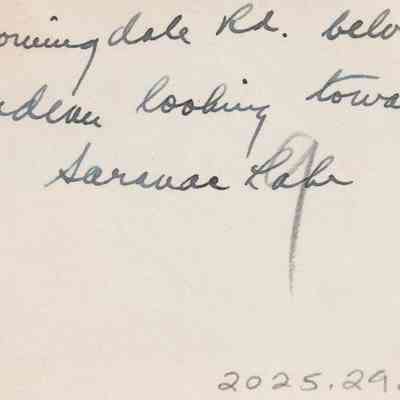 oomingdale Rd. belo
udeau looking towa
Saranac Lake
9
2025.29.